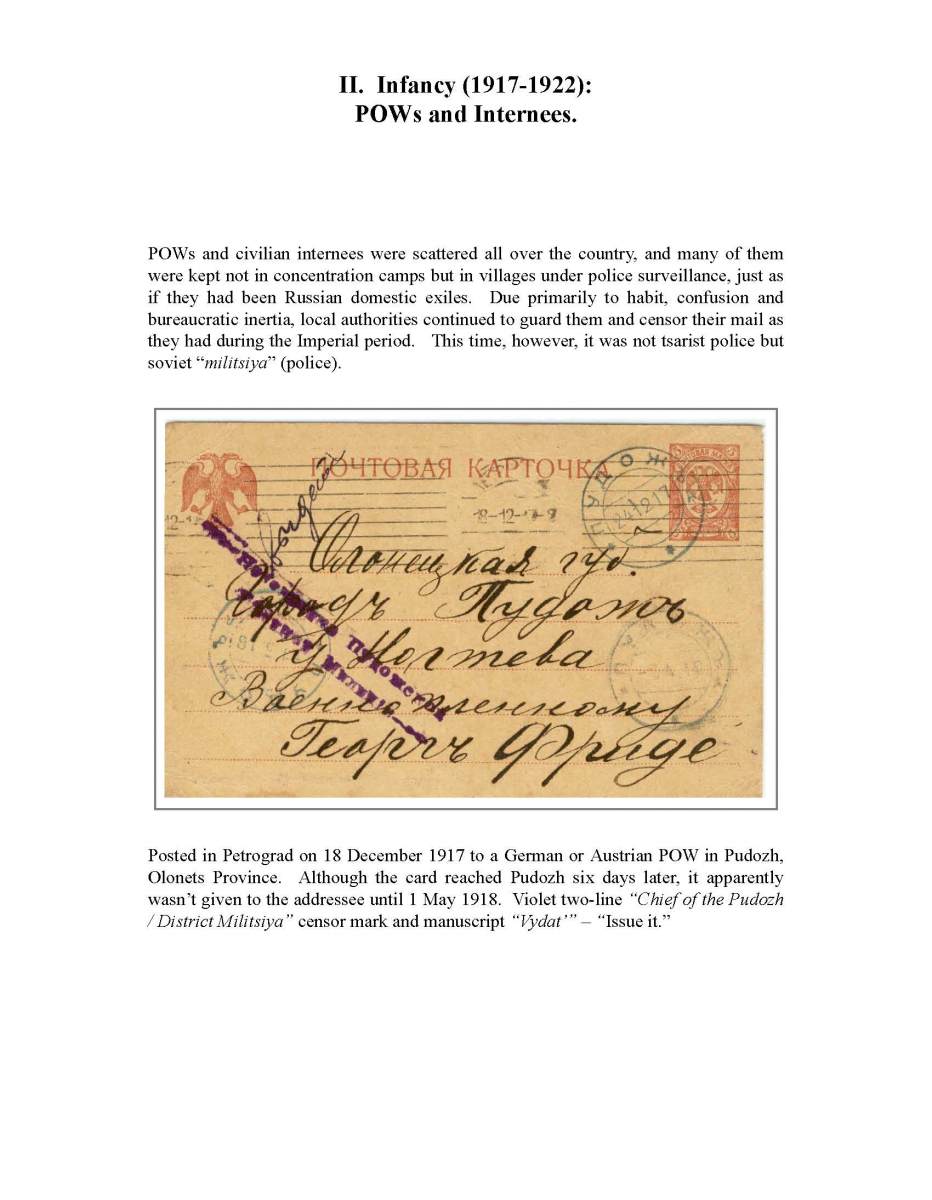 II. Infancy (1917-1922):
POWs and Internees.
POWs and civilian internees were scattered all over the country, and many of them
were kept not in concentration camps but in villages under police surveillance, just as
if they had been Russian domestic exiles. Due primarily to habit, confusion and
bureaucratic inertia, local authorities continued to guard them and censor their mail as
they had during the Imperial period. This time, however, it was not tsarist police but
soviet “militsiya” (police).
ПОЧТОВАЯ КАРТОЧКА
ПУДОЖ
241217
18-12-
Олонецкая губ.
Городъ Пудожъ
у Ногтева
Военнопленному
Георгъ Фриде
Posted in Petrograd on 18 December 1917 to a German or Austrian POW in Pudozh,
Olonets Province. Although the card reached Pudozh six days later, it apparently
wasn’t given to the addressee until 1 May 1918. Violet two-line “Chief of the Pudozh
/ District Militsiya” censor mark and manuscript “Vydat’” – “Issue it.”